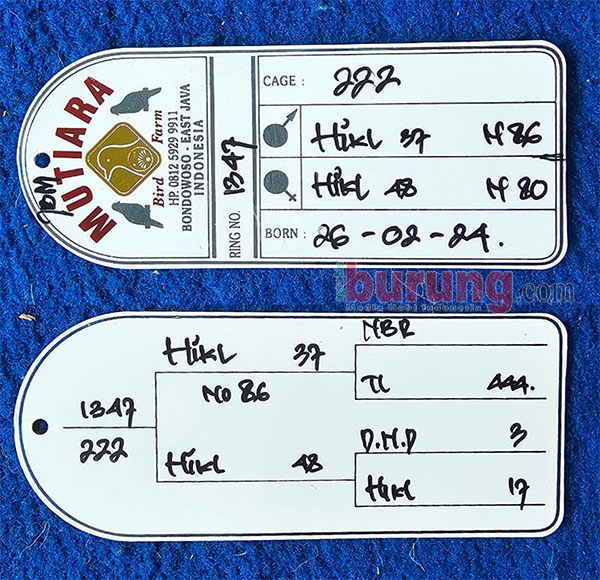 MUTIARA
Bird Farm
HP. 0812 5929 9911
BONDOWOSO - EAST JAVA
INDONESIA
RING NO. 1347
CAGE : 222
♂ HiKL 37 N 86
♀ HiKL 48 N 80
BORN : 26 - 02 - 24.
burung.com
1347
222
HiKL 37
No 86
HiKL 48
NBR
TL 444.
D.N.D 3
HiKL 17